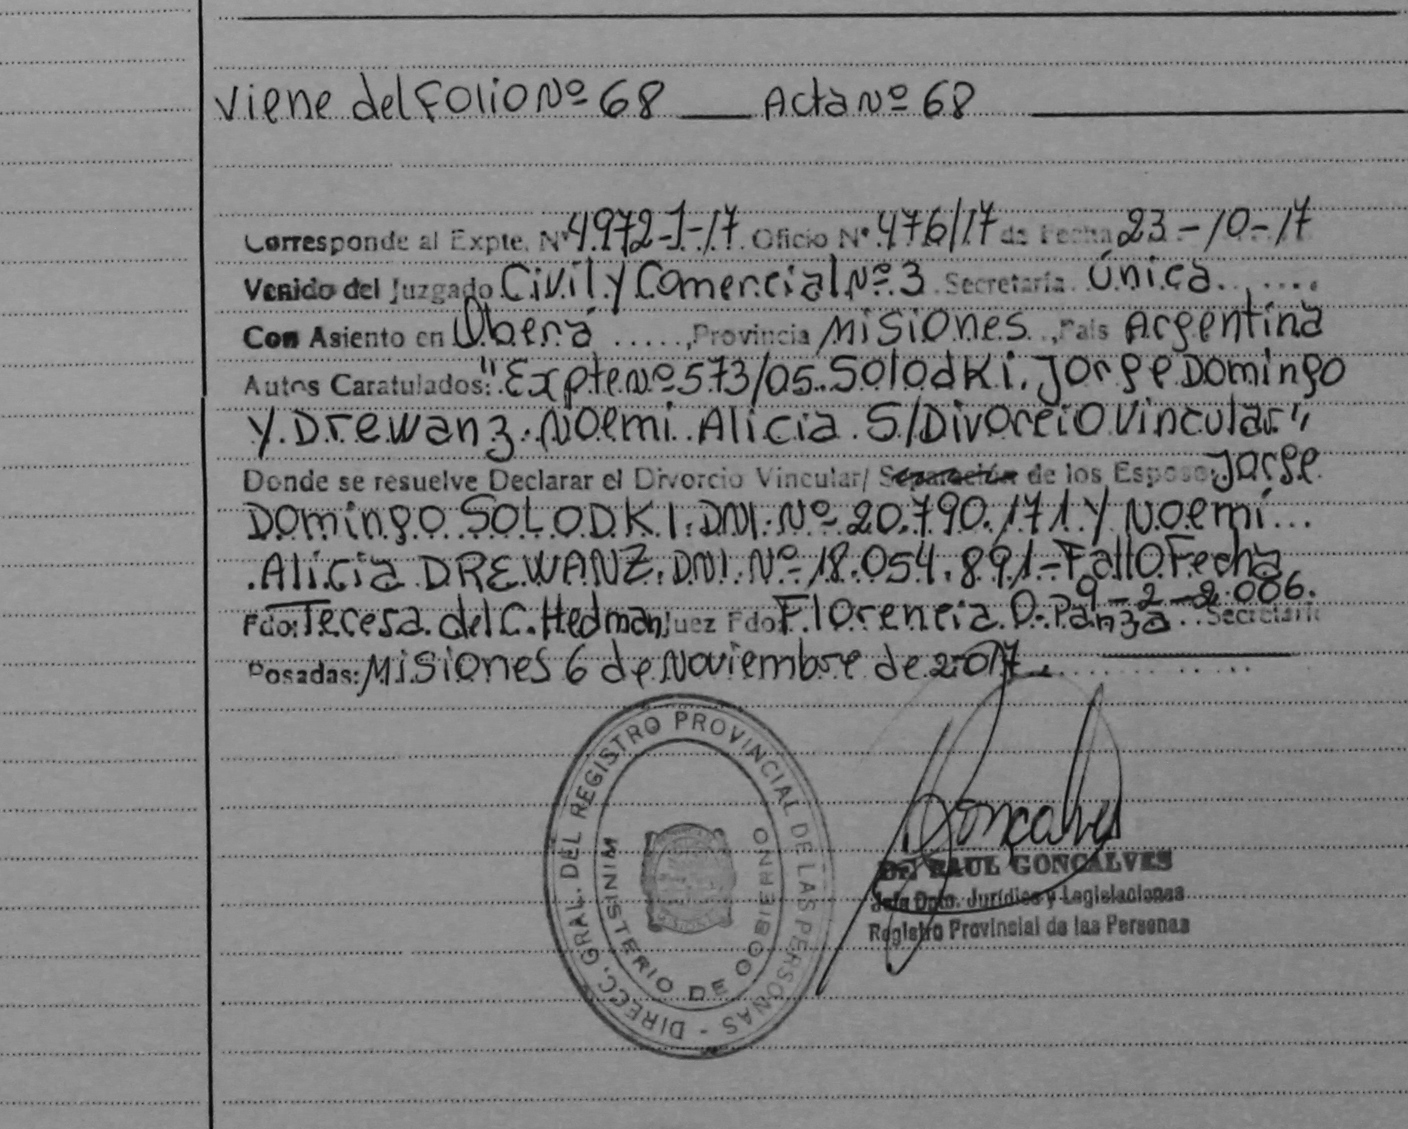 Viene del Folio Nº 68 ___ Acta Nº 68
Corresponde al Expte. Nº 4972-J-17. Oficio Nº 476/17 de Fecha 23-10-17
Venido del Juzgado Civil y Comercial Nº 3. Secretaría. Única......
Con Asiento en Oberá ....., Provincia Misiones.., País Argentina
Autos Caratulados: "Expte Nº 573/05. Solodki. Jorge Domingo
y. Drewanz. Noemi. Alicia. S/Divorcio Vincular"
Donde se resuelve Declarar el Divorcio Vincular/ Separación de los Esposos Jorge.
Domingo. SOLODKI. DNI. Nº 20.790.171. y Noemí...
.Alicia DREWANZ. DNI. Nº 18.054.891.- Fallo Fecha
9-2-2.006.
Fdo: Teresa. del C. Hedman Juez Fdo Florencia. D. Panza.. Secretaria
Posadas: Misiones 6 de Noviembre de 2.017.
DIRECC. GRAL. DEL REGISTRO PROVINCIAL DE LAS PERSONAS -
MINISTERIO DE GOBIERNO
Goncalves
Dr. RAUL GONCALVES
Jefe Dpto. Jurídico y Legislaciones
Registro Provincial de las Personas